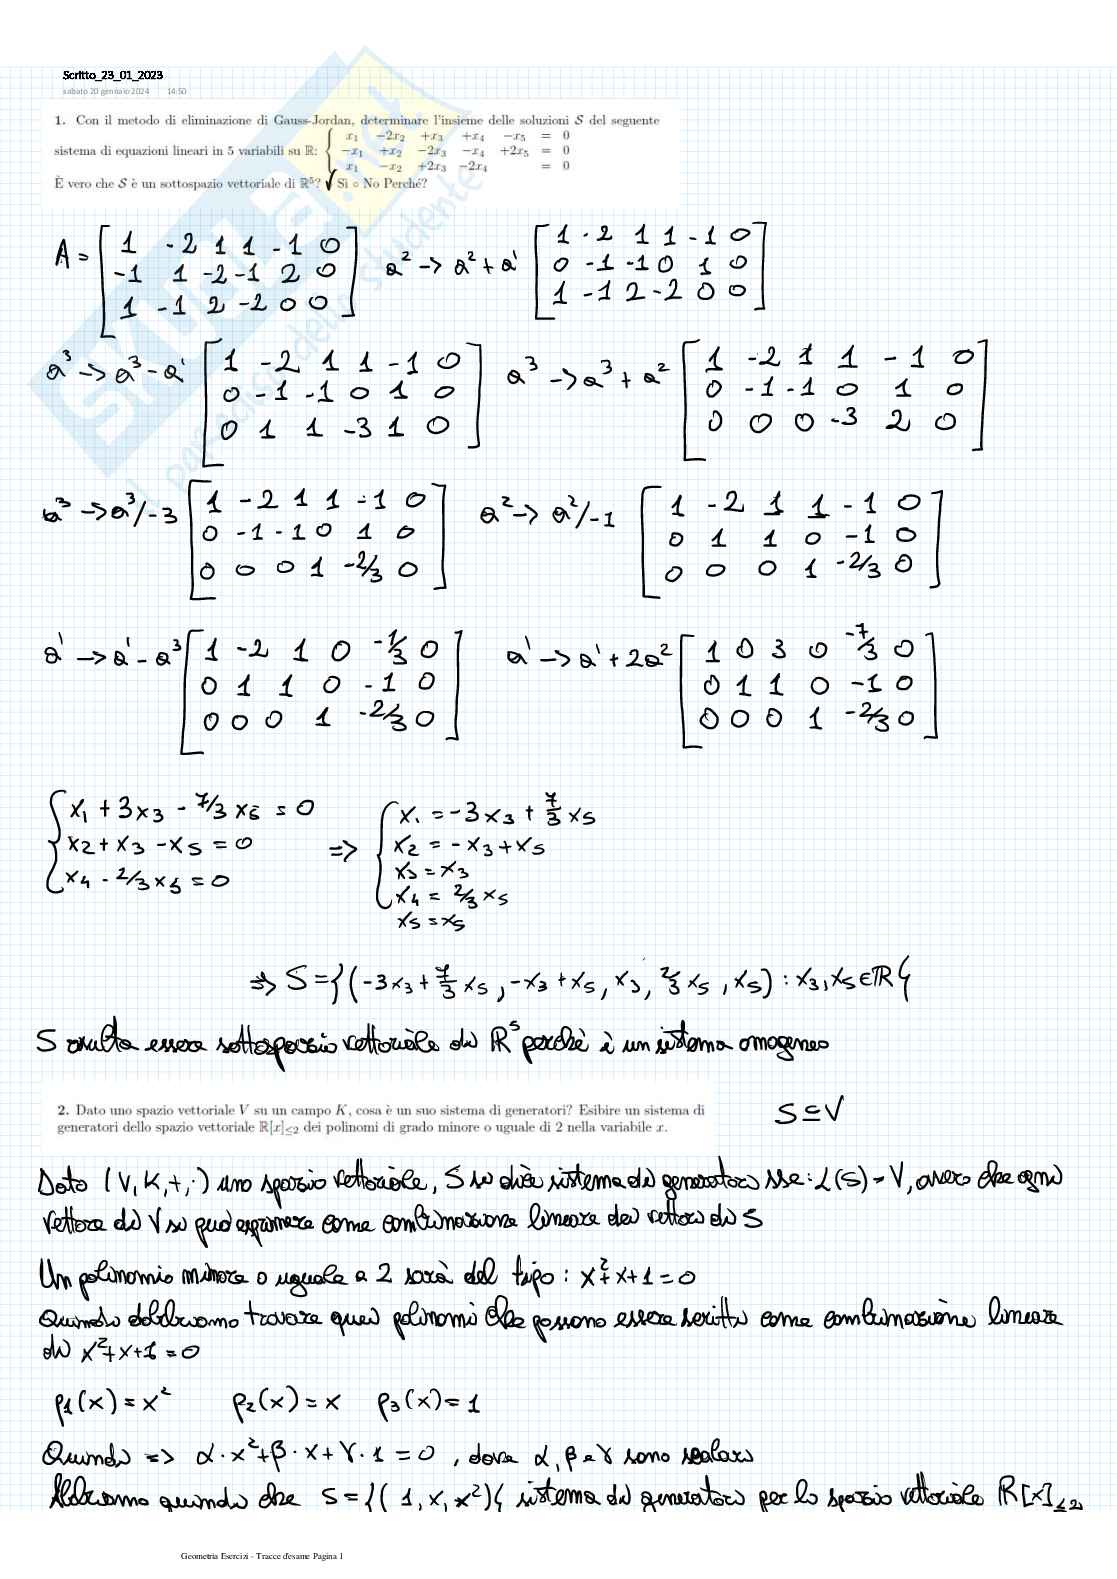 Scritto_23_01_2023
sabato 20 gennaio 2024 14:50
1. Con il metodo di eliminazione di Gauss-Jordan, determinare l'insieme delle soluzioni S del seguente
x₁ −2x₂ +x₃ +x₄ −x₅ = 0
sistema di equazioni lineari in 5 variabili su ℝ: { −x₁ +x₂ −2x₃ −x₄ +2x₅ = 0
x₁ −x₂ +2x₃ −2x₄ = 0
È vero che S è un sottospazio vettoriale di ℝ⁵? √ Sì ○ No Perché?
A = [ 1 -2 1 1 -1 0
-1 1 -2 -1 2 0
1 -1 2 -2 0 0 ]
a² -> a² + a¹ [ 1 -2 1 1 -1 0
0 -1 -1 0 1 0
1 -1 2 -2 0 0 ]
a³ -> a³ - a¹ [ 1 -2 1 1 -1 0
0 -1 -1 0 1 0
0 1 1 -3 1 0 ]
a³ -> a³ + a² [ 1 -2 1 1 -1 0
0 -1 -1 0 1 0
0 0 0 -3 2 0 ]
a³ -> a³/-3 [ 1 -2 1 1 -1 0
0 -1 -1 0 1 0
0 0 0 1 -2/3 0 ]
a² -> a²/-1 [ 1 -2 1 1 -1 0
0 1 1 0 -1 0
0 0 0 1 -2/3 0 ]
a¹ -> a¹ - a³ [ 1 -2 1 0 -1/3 0
0 1 1 0 -1 0
0 0 0 1 -2/3 0 ]
a¹ -> a¹ + 2a² [ 1 0 3 0 -7/3 0
0 1 1 0 -1 0
0 0 0 1 -2/3 0 ]
{ x₁ + 3x₃ - 7/3 x₅ = 0
x₂ + x₃ - x₅ = 0
x₄ - 2/3 x₅ = 0
=> { x₁ = -3x₃ + 7/3 x₅
x₂ = -x₃ + x₅
x₃ = x₃
x₄ = 2/3 x₅
x₅ = x₅
=> S = {(-3x₃ + 7/3 x₅, -x₃ + x₅, x₃, 2/3 x₅, x₅) : x₃, x₅ ∈ ℝ}
S risulta essere sottospazio vettoriale di ℝ⁵ perchè è un sistema omogeneo
2. Dato uno spazio vettoriale V su un campo K, cosa è un suo sistema di generatori? Esibire un sistema di
generatori dello spazio vettoriale ℝ[x]≤2 dei polinomi di grado minore o uguale di 2 nella variabile x.
S ⊆ V
Dato (V, K, +, ·) uno spazio vettoriale, S si dice sistema di generatori sse: L(S) = V, ovvero che ogni
vettore di V si può esprimere come combinazione lineare dei vettori di S
Un polinomio minore o uguale a 2 sarà del tipo: x² + x + 1 = 0
Quindi dobbiamo trovare quei polinomi che possono essere scritti come combinazione lineare
di x² + x + 1 = 0
p₁(x) = x² p₂(x) = x p₃(x) = 1
Quindi => α · x² + β · x + γ · 1 = 0, dove α, β e γ sono scalari
Abbiamo quindi che S = {(1, x, x²)} sistema di generatori per lo spazio vettoriale ℝ[x]≤2
Geometria Esercizi - Tracce d'esame Pagina 1